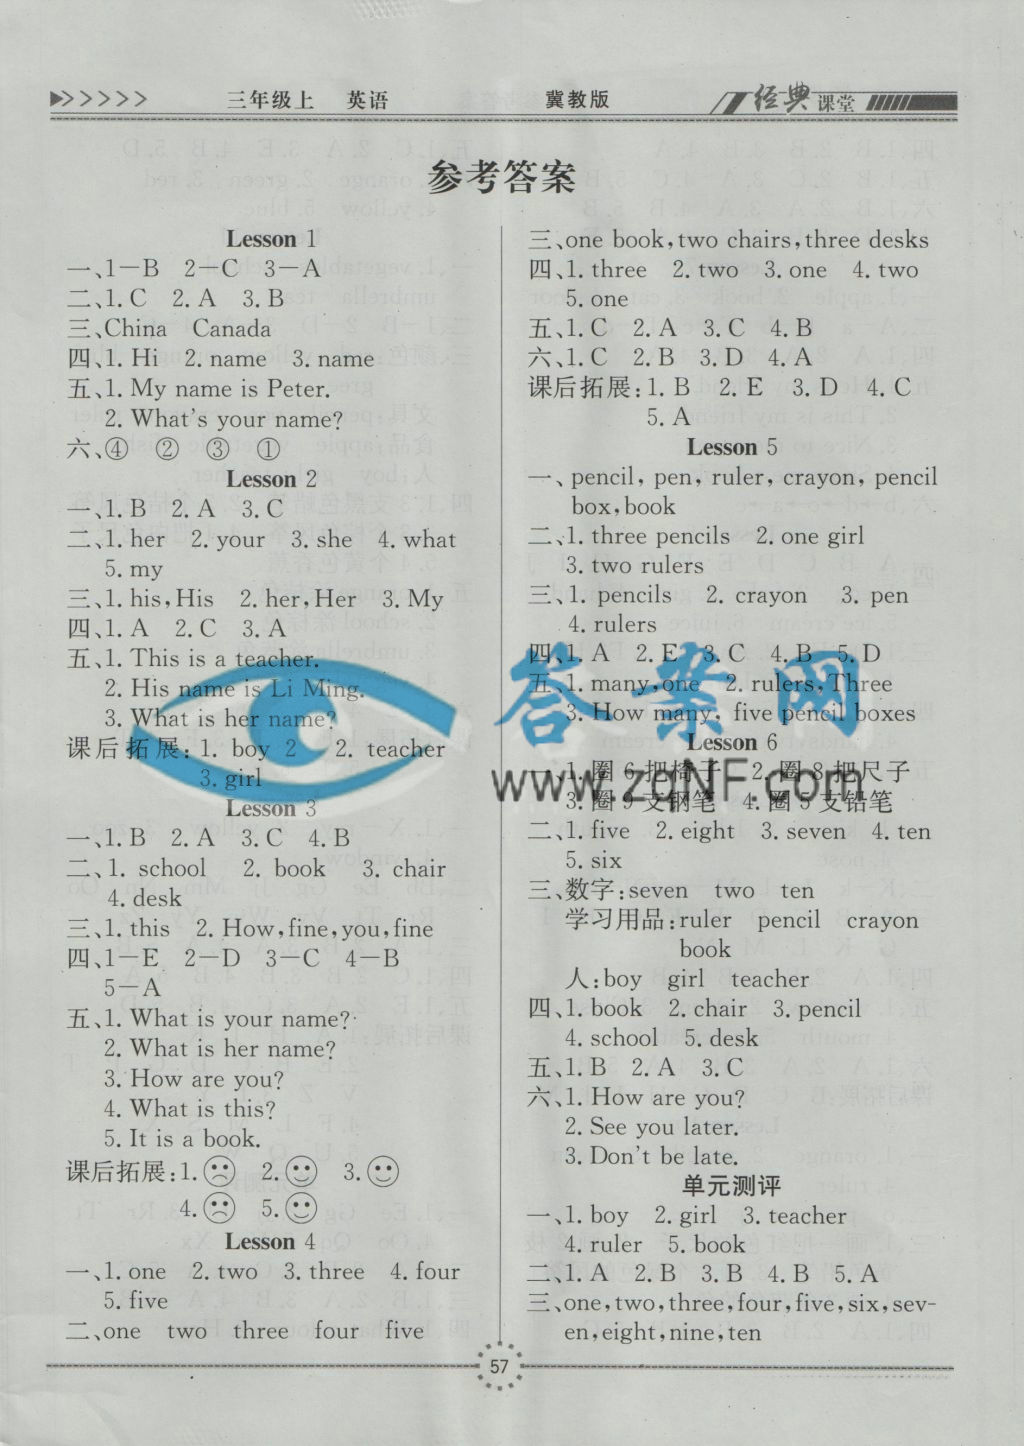 三年级上 英语 冀教版 经典课堂
参考答案
Lesson 1
一、1—B 2—C 3—A
二、1. C 2. A 3. B
三、China Canada
四、1. Hi 2. name 3. name
五、1. My name is Peter.
2. What's your name?
六、④ ② ③ ①
Lesson 2
一、1. B 2. A 3. C
二、1. her 2. your 3. she 4. what
5. my
三、1. his, His 2. her, Her 3. My
四、1. A 2. C 3. A
五、1. This is a teacher.
2. His name is Li Ming.
3. What is her name?
课后拓展: 1. boy 2 2. teacher
3. girl
Lesson 3
一、1. B 2. A 3. C 4. B
二、1. school 2. book 3. chair
4. desk
三、1. this 2. How, fine, you, fine
四、1—E 2—D 3—C 4—B
5—A
五、1. What is your name?
2. What is her name?
3. How are you?
4. What is this?
5. It is a book.
课后拓展: 1. 2. 3.
4. 5.
Lesson 4
一、1. one 2. two 3. three 4. four
5. five
二、one two three four five
三、one book, two chairs, three desks
四、1. three 2. two 3. one 4. two
5. one
五、1. C 2. A 3. C 4. B
六、1. C 2. B 3. D 4. A
课后拓展: 1. B 2. E 3. D 4. C
5. A
Lesson 5
一、pencil, pen, ruler, crayon, pencil
box, book
二、1. three pencils 2. one girl
3. two rulers
三、1. pencils 2. crayon 3. pen
4. rulers
四、1. A 2. E 3. C 4. B 5. D
五、1. many, one 2. rulers, Three
3. How many, five pencil boxes
答案网
www.zqNF.com
Lesson 6
一、1. 圈 6 把椅子 2. 圈 8 把尺子
3. 圈 9 支钢笔 4. 圈 5 支铅笔
二、1. five 2. eight 3. seven 4. ten
5. six
三、数字: seven two ten
学习用品: ruler pencil crayon
book
人: boy girl teacher
四、1. book 2. chair 3. pencil
4. school 5. desk
五、1. B 2. A 3. C
六、1. How are you?
2. See you later.
3. Don't be late.
单元测评
一、1. boy 2. girl 3. teacher
4. ruler 5. book
二、1. A 2. B 3. B 4. B 5. A
三、one, two, three, four, five, six, sev-
en, eight, nine, ten
57